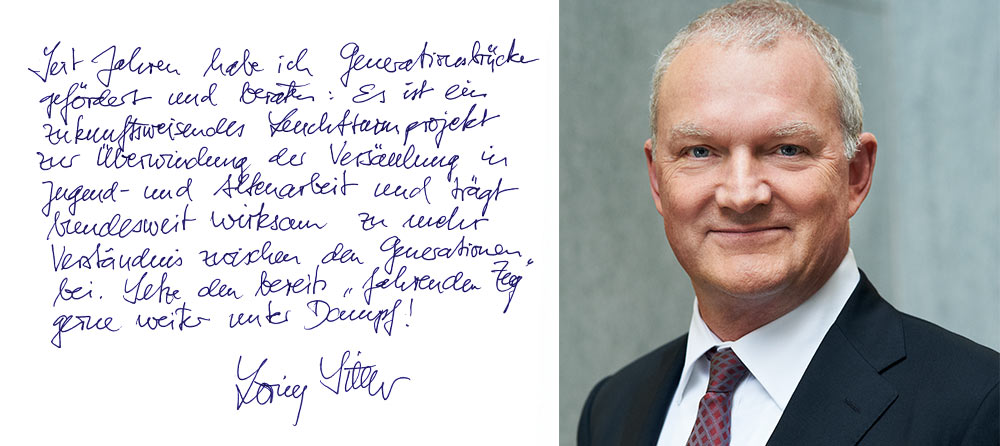 Seit Jahren habe ich Generationsbrücke
gefördert und beraten: Es ist ein
zukunftsweisendes Leuchtturmprojekt
zur Überwindung der Versäulung in
Jugend- und Altenarbeit und trägt
bundesweit wirksam zu mehr
Verständnis zwischen den Generationen
bei. Setze den bereits „fahrenden Zug“
gerne weiter unter Dampf!
Loring Sittler